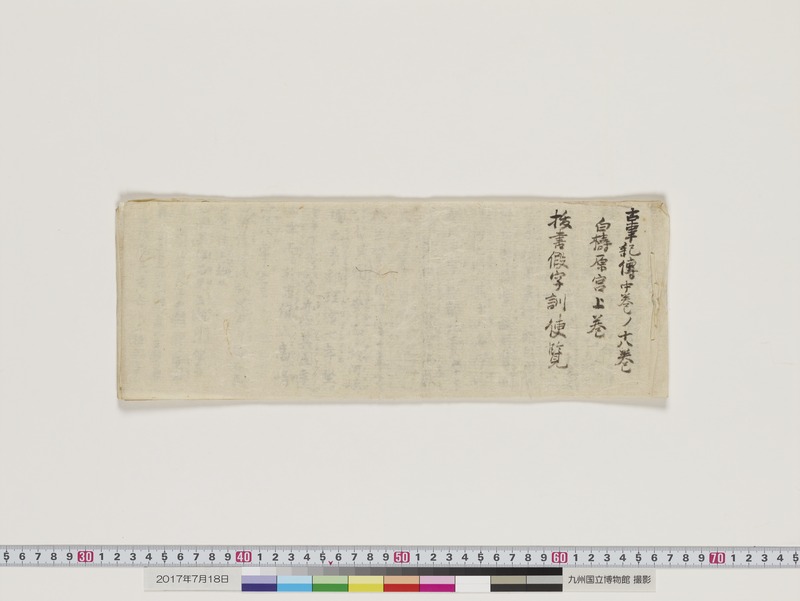 古事記傳中巻ノ十八巻
白檮原宮上巻
抜書假字訓便覧
5 6 7 8 9 30 1 2 3 4 5 6 7 8 9 40 1 2 3 4 5 6 7 8 9 50 1 2 3 4 5 6 7 8 9 60 1 2 3 4 5 6 7 8 9 70 1 2 3 4 5
2017年7月18日
九州国立博物館 撮影